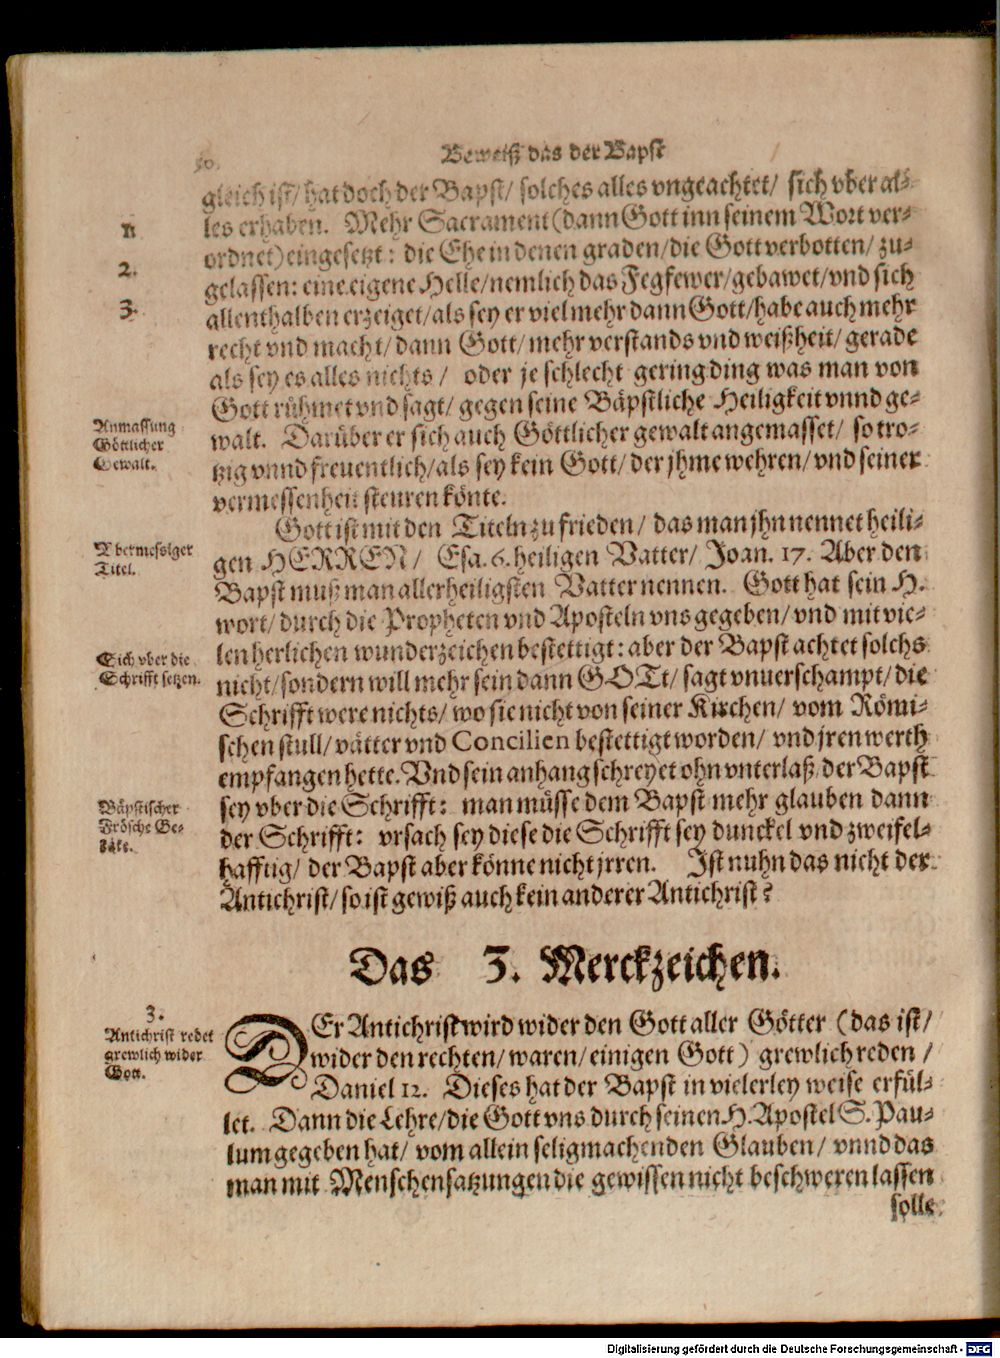 50. Beweiß das der Bapst
gleich ist/ hat doch der Bapst/ solches alles vngeachtet/ sich vber al-
les erhaben. Mehr Sacrament (dann Gott inn seinem Wort ver-
ordnet) eingesetzt: die Ehe in denen graden/ die Gott verbotten/ zu-
2.
gelassen: eine eigene Helle/ nemlich das Fegfewer/ gebawet/ vnd sich
3.
allenthalben erzeiget/ als sey er viel mehr dann Gott/ habe auch mehr
recht vnd macht/ dann Gott/ mehr verstands vnd weißheit/ gerade
als sey es alles nichts/ oder je schlecht gering ding was man von
Gott rühmet vnd sagt/ gegen seine Bäpstliche Heiligkeit vnnd ge-
Anmassung
Göttlicher
Gewalt.
walt. Darüber er sich auch Göttlicher gewalt angemasset/ so tro-
tzig vnnd freuentlich/ als sey kein Gott/ der jhme wehren/ vnd seiner
vermessenheit steuren könte.
Gott ist mit den Titeln zu frieden/ das man jhn nennet heili-
Vbermessiger
Titel.
gen HERREN/ Esa. 6. heiligen Vatter/ Joan. 17. Aber den
Bapst muß man allerheiligsten Vatter nennen. Gott hat sein H.
wort/ durch die Propheten vnd Aposteln vns gegeben/ vnd mit vie-
len herlichen wunderzeichen bestettigt: aber der Bapst achtet solchs
Sich vber die
Schrifft setzen.
nicht/ sondern will mehr sein dann GOTt/ sagt vnuerschampt/ die
Schrifft were nichts/ wo sie nicht von seiner Kirchen/ vom Römi-
schen stull/ vätter vnd Concilien bestettigt worden/ vnd jren werth
empfangen hette. Vnd sein anhang schreyet ohn vnterlaß/ der Bapst
Bäpstischer
Frösche Ge-
käke.
sey vber die Schrifft: man müsse dem Bapst mehr glauben dann
der Schrifft: vrsach sey diese die Schrifft sey dunckel vnd zweifel-
hafftig/ der Bapst aber könne nicht jrren. Ist nuhn das nicht der
Antichrist/ so ist gewiß auch kein anderer Antichrist?
Das 3. Merckzeichen.
3.
Antichrist redet
grewlich wider
Gott.
DEr Antichrist wird wider den Gott aller Götter (das ist/
wider den rechten/ waren/ einigen Gott) grewlich reden/
Daniel 12. Dieses hat der Bapst in vielerley weise erfül-
let. Dann die Lehre/ die Gott vns durch seinen H. Apostel S. Pau-
lum gegeben hat/ vom allein seligmachenden Glauben/ vnnd das
man mit Menschensatzungen die gewissen nicht beschweren lassen
solle.
Digitalisierung gefördert durch die Deutsche Forschungsgemeinschaft - DFG